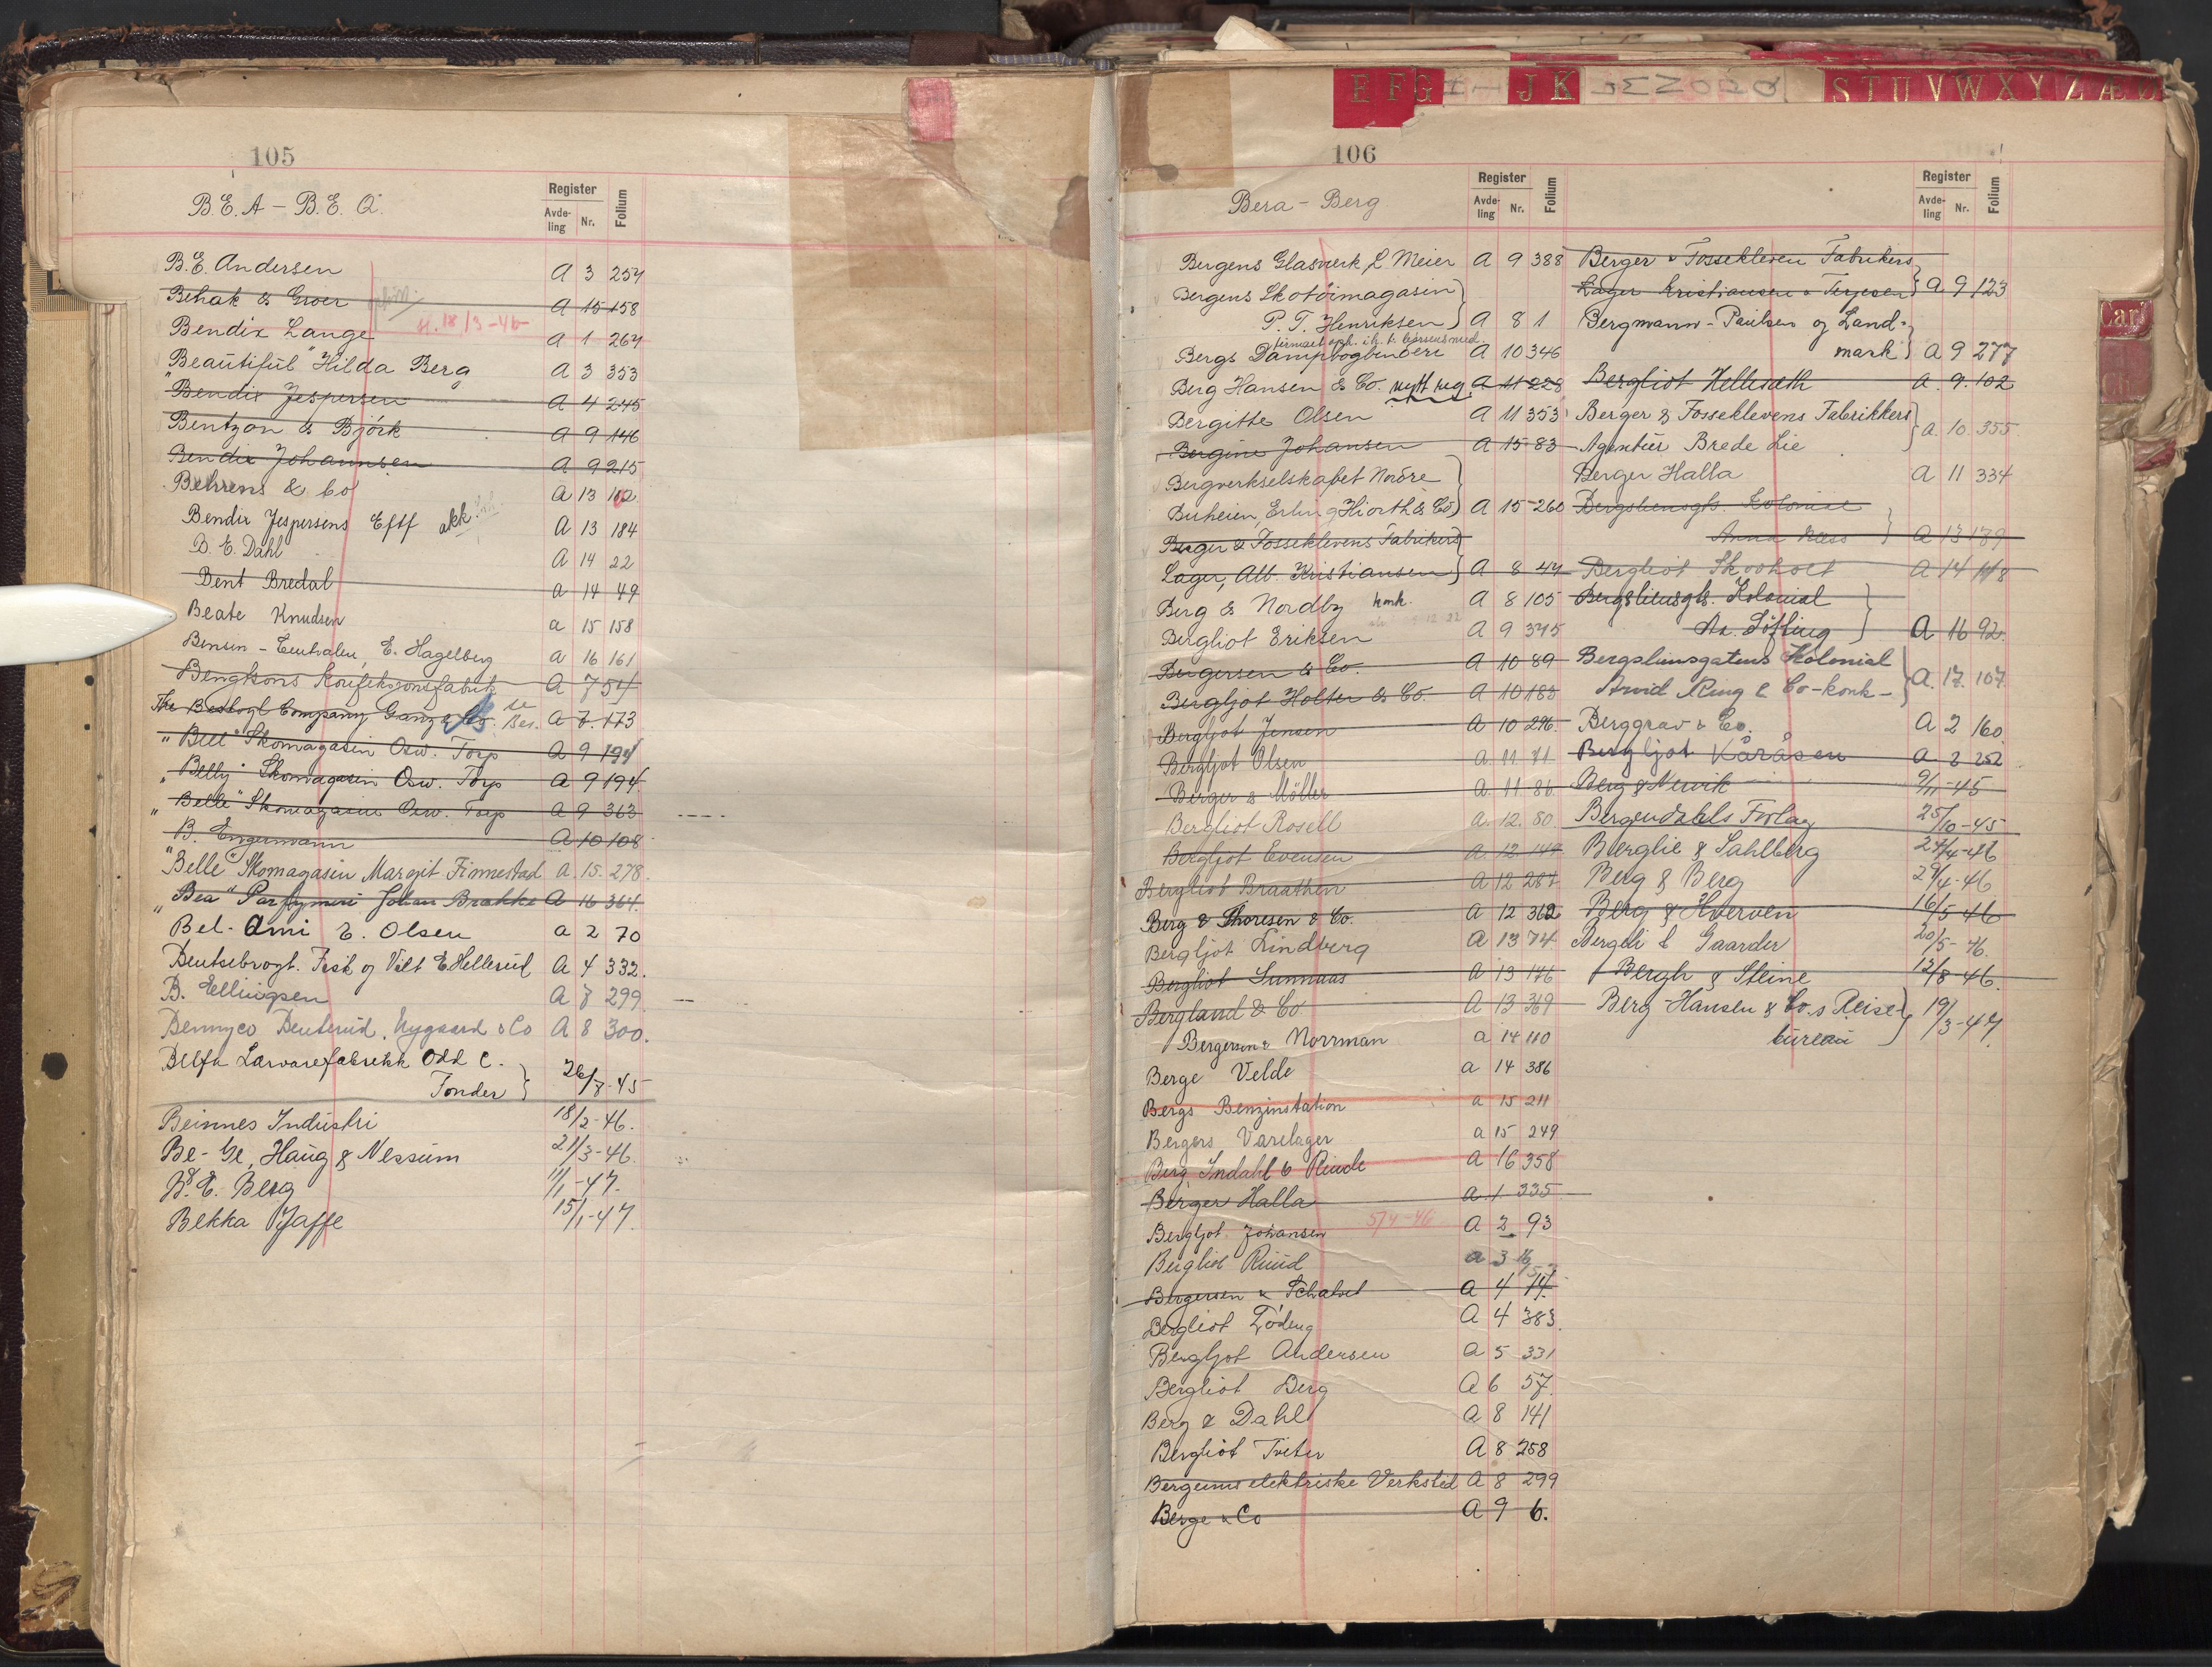 105
B.E.A - B.E.Q.
Register
Avde-
ling
Nr.
Folium
B.E. Andersen A 3 254
Behak & Groer A 15 158
sl. 18/3-46
Bendix Lange A 1 264
Beautiful" Hilda Berg A 3 353
"Bendix Jespersen A 4 245
Bentzon & Björk A 9 146
Bendix Johannsen A 9 215
Behrens & Co A 13 102
Bendix Jespersens Eftf akk. A 13 184
B.E. Dahl A 14 22
Bent Bredal a 14 49
Beate Knudsen a 15 158
Bensin - Centralen, E. Hagelberg a 16 161
Bengtsons Konfeksjonsfabrik A 7 54
The Beskogl Company, Ganz & Co. se Bes. A 7 173
"Bell" Skomagasin Osw. Torp A 9 194
"Belly" Skomagasin Osw. Torp A 9 194
"Belle" Skomagasin Osw. Torp A 9 363
B. Engermann A 10 108
"Belle" Skomagasin Margit Finnestad A 15. 278.
"Bea" Parfymeri Johan Brakke A 16 364.
Bel-Ami E. Olsen a 2 70
Bentsebrogt. Fisk og Vilt E. Hellerud A 4 332.
B. Ellingsen A 7 299
Bennyco Benterud, Nygaard & Co A 8 300.
Belfa Larvarefabrikk Odd C.
Fonder } 26/7-45
Beinnes Industri 18/2-46.
Be-Ge, Haug & Nessum 21/3-46.
B. E. Berg 11/1-47.
Bekka Jaffe 15/1-47.
E F G H I J K L M N O P Q S T U V W X Y Z Æ Ø
106
Bera - Berg
Register
Avde-
ling
Nr.
Folium
Bergens Glasverk, L. Meier A 9 388
Bergens Skotöimagasin
P. T. Henriksen } A 8 1
Bergs Dampbogbinderi A 10 346
Berg Hansen & Co. nytt reg. A 11 228
Bergitte Olsen A 11 353
Bergine Johansen A 15 83
Bergverkselskabet Nordre
Buheien, Erling Hiorth & Co } A 15 260
Berger & Fosseklevens Fabrikers
Lager, Alb. Kristiansen } A 8 44
Berg & Nordby konk. A 8 105
Bergliot Eriksen A 9 345
Bergersen & Co. A 10 89
Bergljot Holter & Co. A 10 183
Bergljot Jensen A 10 296.
Bergljot Olsen a. 11. 71
Berger & Möller a. 11 86
Bergliot Rosell a. 12. 80
Bergljot Evensen a. 12. 149
Bergliot Braathen A 12 287
Berg & Thoresen & Co. A 12 362
Bergljot Lindberg A 13 74
Bergliot Sunnaas A 13 146
Bergland & Co A 13 369
Bergersen & Norrman a 14 110
Berge Velde a 14 386
Bergs Benzinstation a 15 211
Bergers Varelager a 15 249
Berg, Indahl & Rinde A 16 358
Berger Halla a. 1 335
Bergljot Johansen 5/4-46 A 2 93
Bergliot Ruud a 3 16
Bergersen & Schalvet a 4 14.
Bergliot Tödeng A 4 383.
Bergljot Andersen a 5 331
Bergliot Berg A 6 57.
Berg & Dahl A 8 141
Bergliot Tveter A 8 258
Bergums elektriske Verksted A 8 299
Berge & Co A 9 6.
Register
Avde-
ling
Nr.
Folium
Berger & Fossekleven Fabrikers
Lager Kristiansen & Terjesen } a 9 123
Bergmann - Paulsen og Land-
mark } A 9 277
Bergliot Hellesath a. 9. 102
Berger & Fosseklevens Fabrikkers
Agentur Brede Lie } a. 10. 355
Berger Halla A 11 334
Bergsliensgts. Kolonial
Anna Næss } A 13 189
Bergliot Skovholt A 14 118
Bergsliensgts. Kolonial
Aa. Löfling } A 16 92.
Bergsliensgatens Kolonial
Arvid Ring & Co - konk - } A. 17. 107
Berggrav & Co. A 2 160
Bergljot Kåråsen a. 2 252
Berg & Nervik 9/11-45
Bergendahls Forlag 25/10-45
Berglie & Sahlberg 24/4-46
Berg & Berg 29/4-46
Berg & Hverven 16/5-46
Bergli & Gaarder 20/5-46.
Bergh & Steine 12/8-46.
Berg-Hansen & Co.s Reise-
bureau } 19/3-47.
Car
Ch